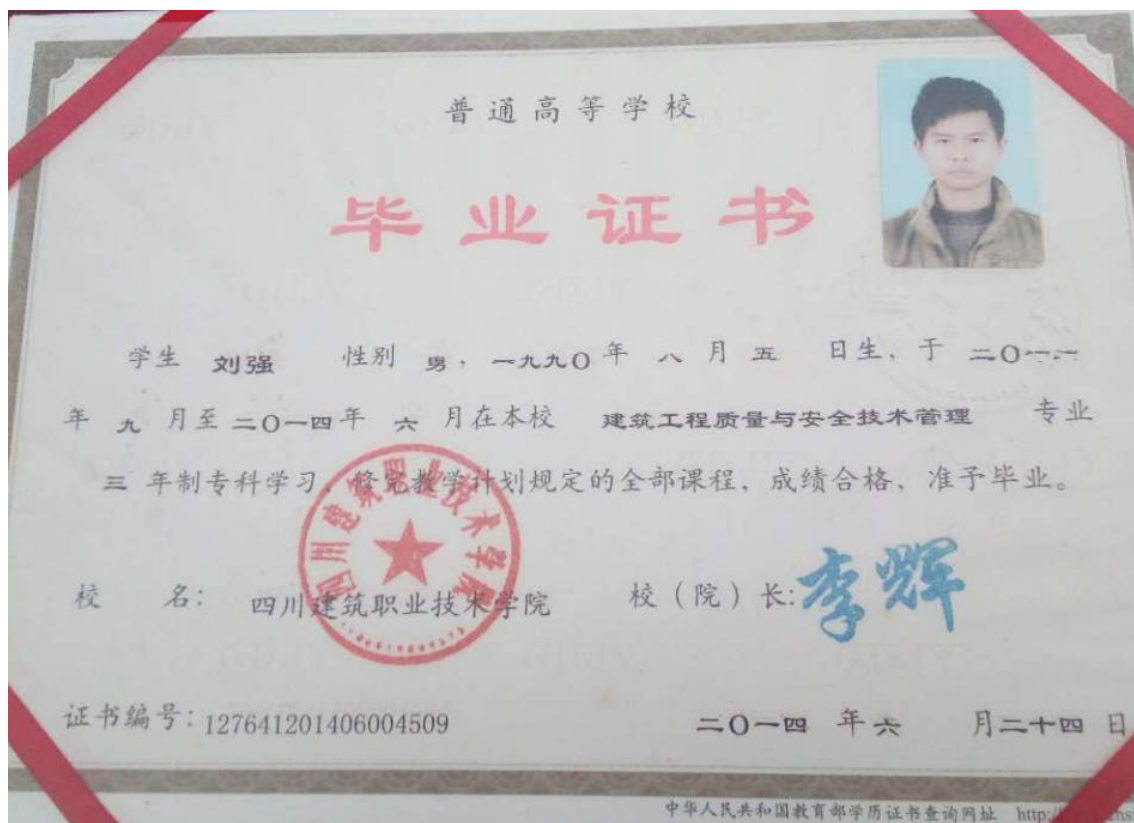 普通高等学校
毕业证书
学生 刘强 性别 男，一九九〇年 八 月 五 日生，于 二〇一一
年 九 月至二〇一四年 六 月在本校 建筑工程质量与安全技术管理 专业
三 年制专科学习，修完教学计划规定的全部课程，成绩合格，准予毕业。
四川建筑职业技术学院
校 名： 四川建筑职业技术学院 校（院）长：李辉
证书编号：127641201406004509 二〇一四 年六 月二十四 日
中华人民共和国教育部学历证书查询网址 http: